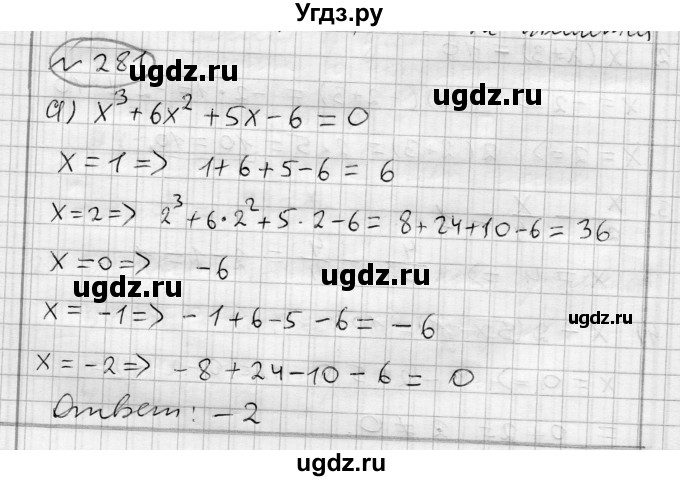 Угдз.ру
№ 281
ugdz.ru ugdz.ru
а) x³ + 6x² + 5x - 6 = 0
ugdz.ru
x = 1 => 1 + 6 + 5 - 6 = 6
x = 2 => 2³ + 6 · 2² + 5 · 2 - 6 = 8 + 24 + 10 - 6 = 36
x = 0 => -6
ugdz.ru ugdz.ru
x = -1 => -1 + 6 - 5 - 6 = -6
ugdz.ru
x = -2 => -8 + 24 - 10 - 6 = 0
Ответ: -2
ugdz.ru
ugdz.ru